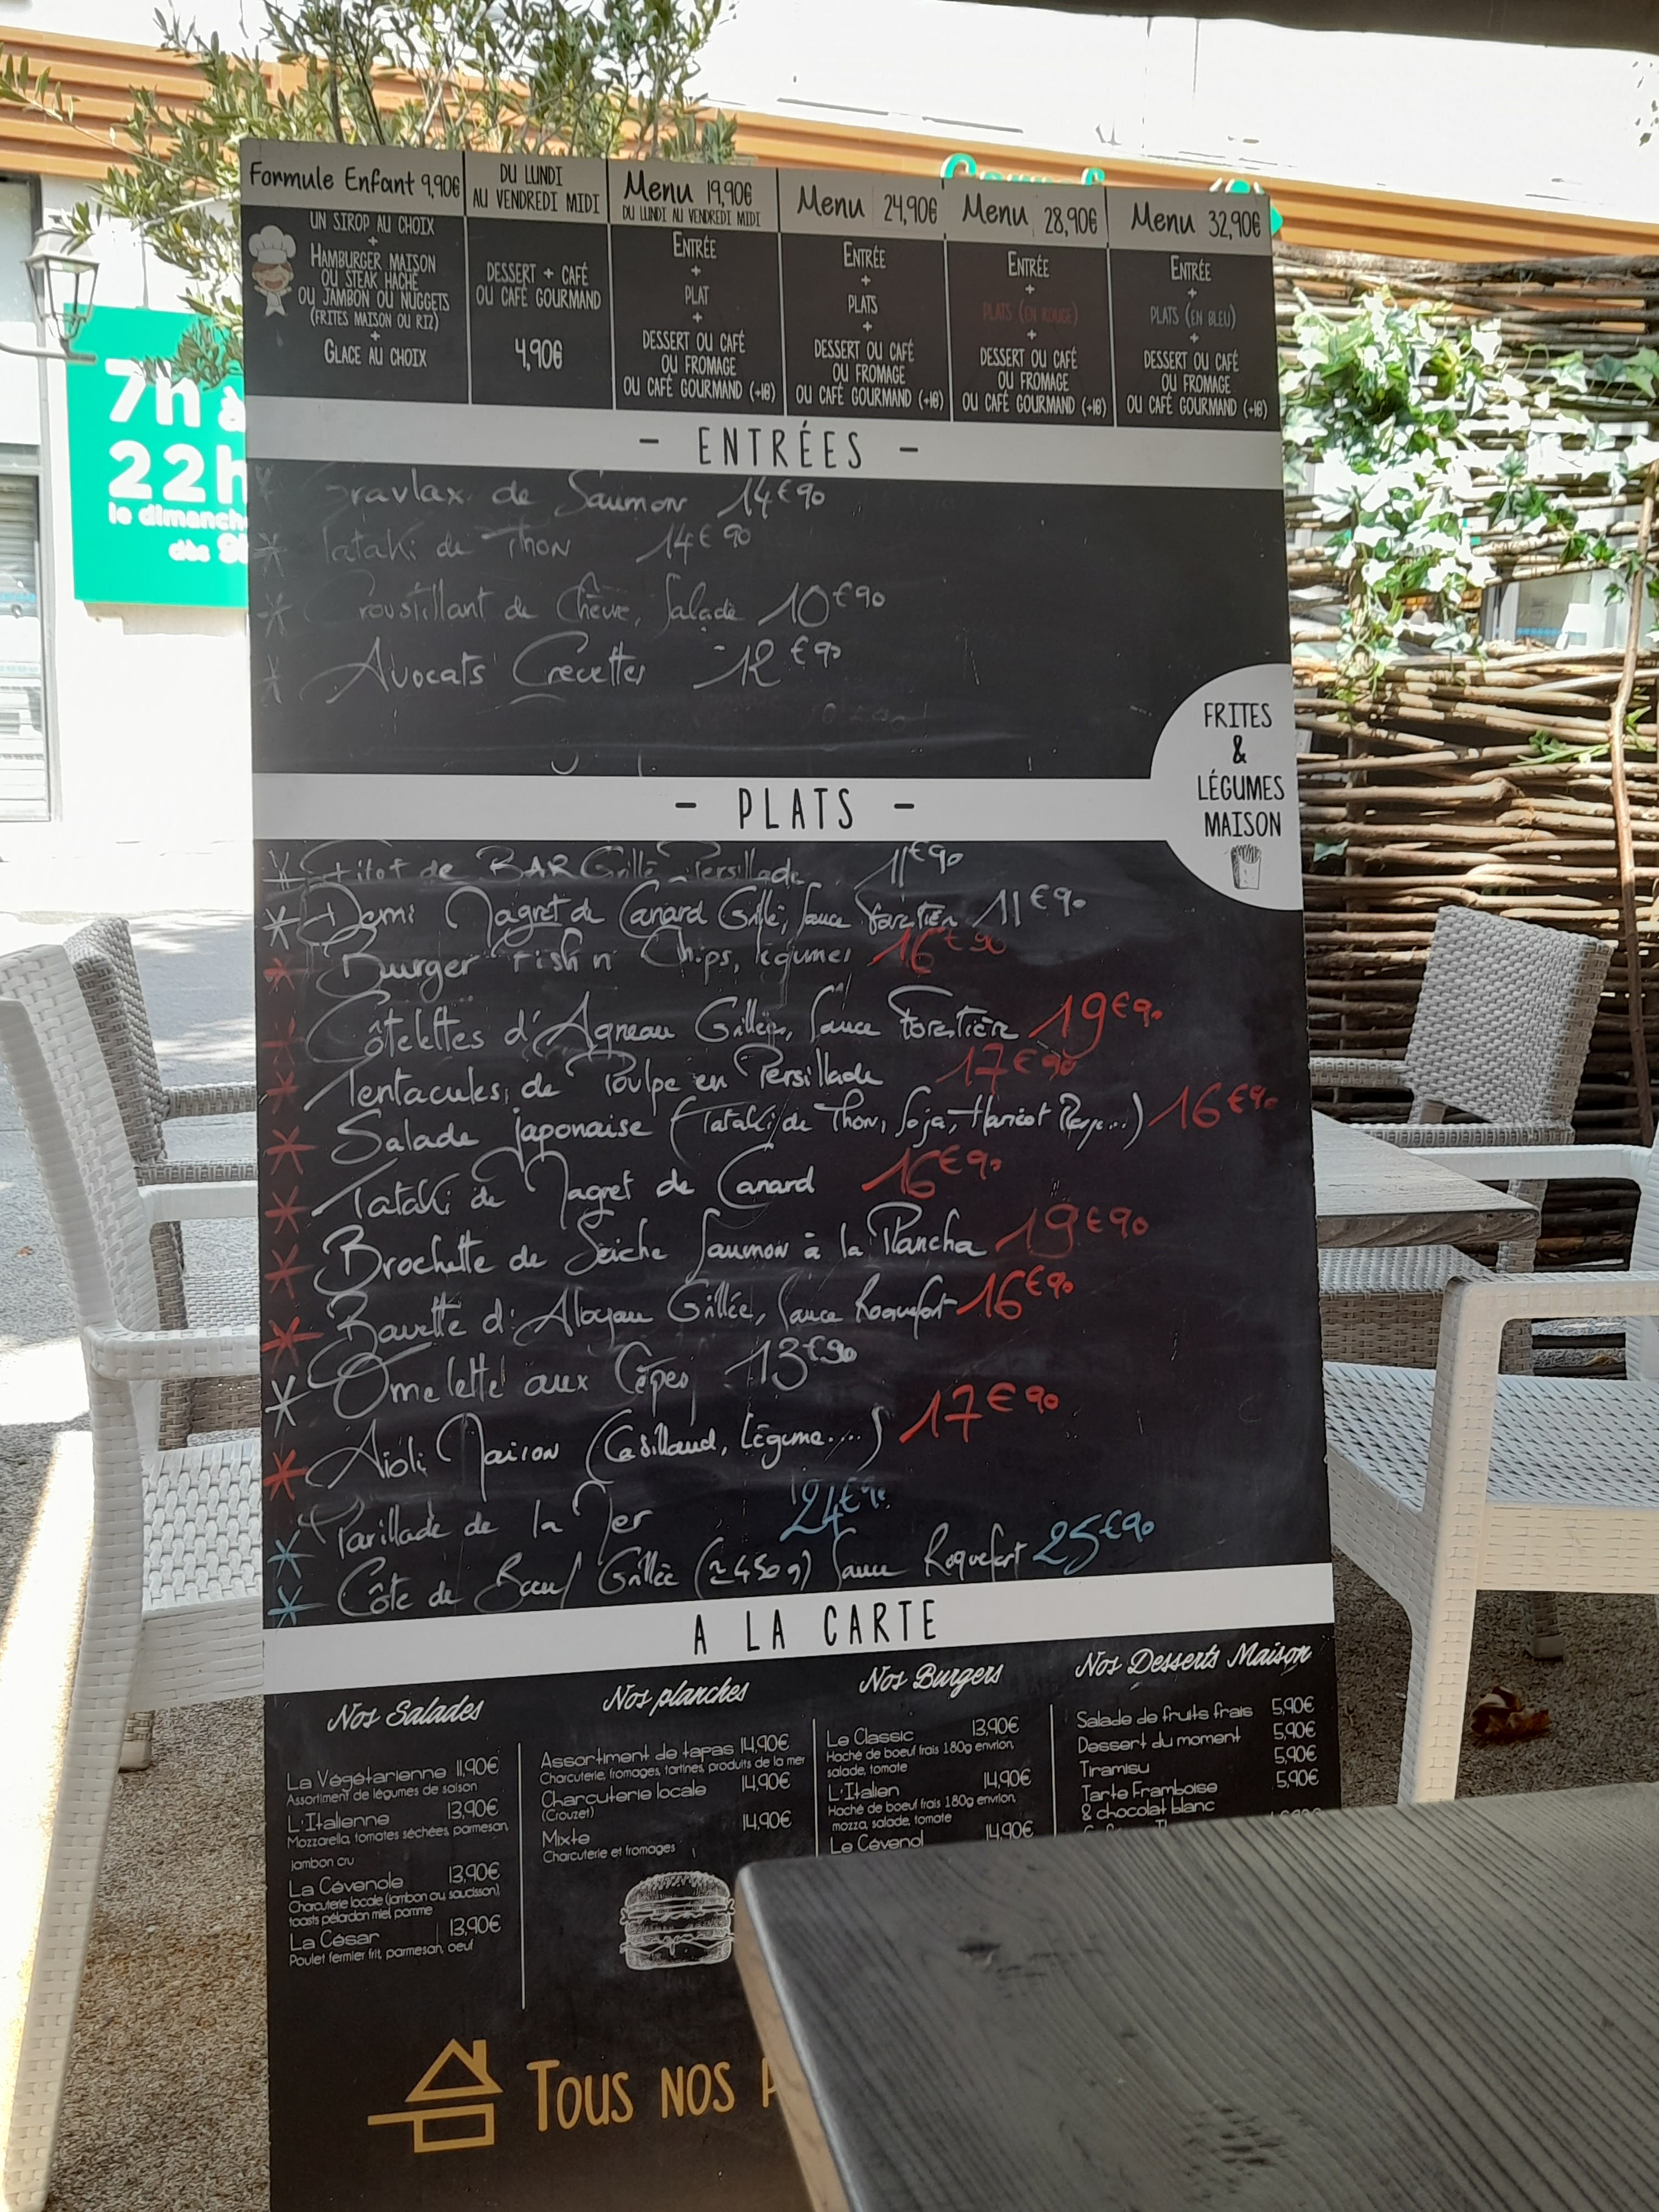 Formule Enfant 9,90€
UN SIROP AU CHOIX
+
HAMBURGER MAISON
OU STEAK HACHÉ
OU JAMBON OU NUGGETS
(FRITES MAISON OU RIZ)
+
GLACE AU CHOIX
DU LUNDI
AU VENDREDI MIDI
DESSERT + CAFÉ
OU CAFÉ GOURMAND
4,90€
Menu 19,90€
DU LUNDI AU VENDREDI MIDI
ENTRÉE
+
PLAT
+
DESSERT OU CAFÉ
OU FROMAGE
OU CAFÉ GOURMAND (+1€)
Menu 24,90€
ENTRÉE
+
PLATS
+
DESSERT OU CAFÉ
OU FROMAGE
OU CAFÉ GOURMAND (+1€)
Menu 28,90€
ENTRÉE
+
PLATS (EN ROUGE)
+
DESSERT OU CAFÉ
OU FROMAGE
OU CAFÉ GOURMAND (+1€)
Menu 32,90€
ENTRÉE
+
PLATS (EN BLEU)
+
DESSERT OU CAFÉ
OU FROMAGE
OU CAFÉ GOURMAND (+1€)
7h à
22h
le dimanch
dès
- ENTRÉES -
* Gravlax de Saumon 14€90
* Tataki de Thon 14€90
* Croustillant de Chèvre, Salade 10€90
* Avocats Crevettes 12€90
FRITES
&
LÉGUMES
MAISON
- PLATS -
* Filet de BAR Grillé Persillade 11€90
* Demi Magret de Canard Grillé, Sauce Forestière 11€90
* Burger Fish n' Chips, légumes 16€90
* Côtelettes d'Agneau Grillées, Sauce Forestière 19€90
* Tentacules de Poulpe en Persillade 17€90
* Salade japonaise (Tataki de Thon, Soja, Haricot ...) 16€90
* Tataki de Magret de Canard 16€90
* Brochette de Seiche Saumon à la Plancha 19€90
* Bavette d'Aloyau Grillée, Sauce Roquefort 16€90
* Omelette aux Cèpes 13€90
* Aïoli Maison (Cabillaud, Légume....) 17€90
* Parillade de la Mer 24€90
* Côte de Boeuf Grillée (≃450g) Sauce Roquefort 25€90
A LA CARTE
Nos Salades
La Végétarienne 11,90€
Assortiment de légumes de saison
L'Italienne 13,90€
Mozzarella, tomates séchées, parmesan,
jambon cru
La Cévenole 13,90€
Charcuterie locale (jambon cru, saucisson),
toasts pélardon miel, pomme
La César 13,90€
Poulet fermier frit, parmesan, oeuf
Nos planches
Assortiment de tapas 14,90€
Charcuterie, fromages, tartines, produits de la mer
Charcuterie locale 14,90€
(Crouzet)
Mixte 14,90€
Charcuterie et fromages
Nos Burgers
Le Classic 13,90€
Haché de boeuf frais 180g envrion,
salade, tomate
L'Italien 14,90€
Haché de boeuf frais 180g envrion,
mozza, salade, tomate
Le Cévenol 14,90€
Nos Desserts Maison
Salade de fruits frais 5,90€
Dessert du moment 5,90€
Tiramisu 5,90€
Tarte Framboise 5,90€
& chocolat blanc
TOUS NOS